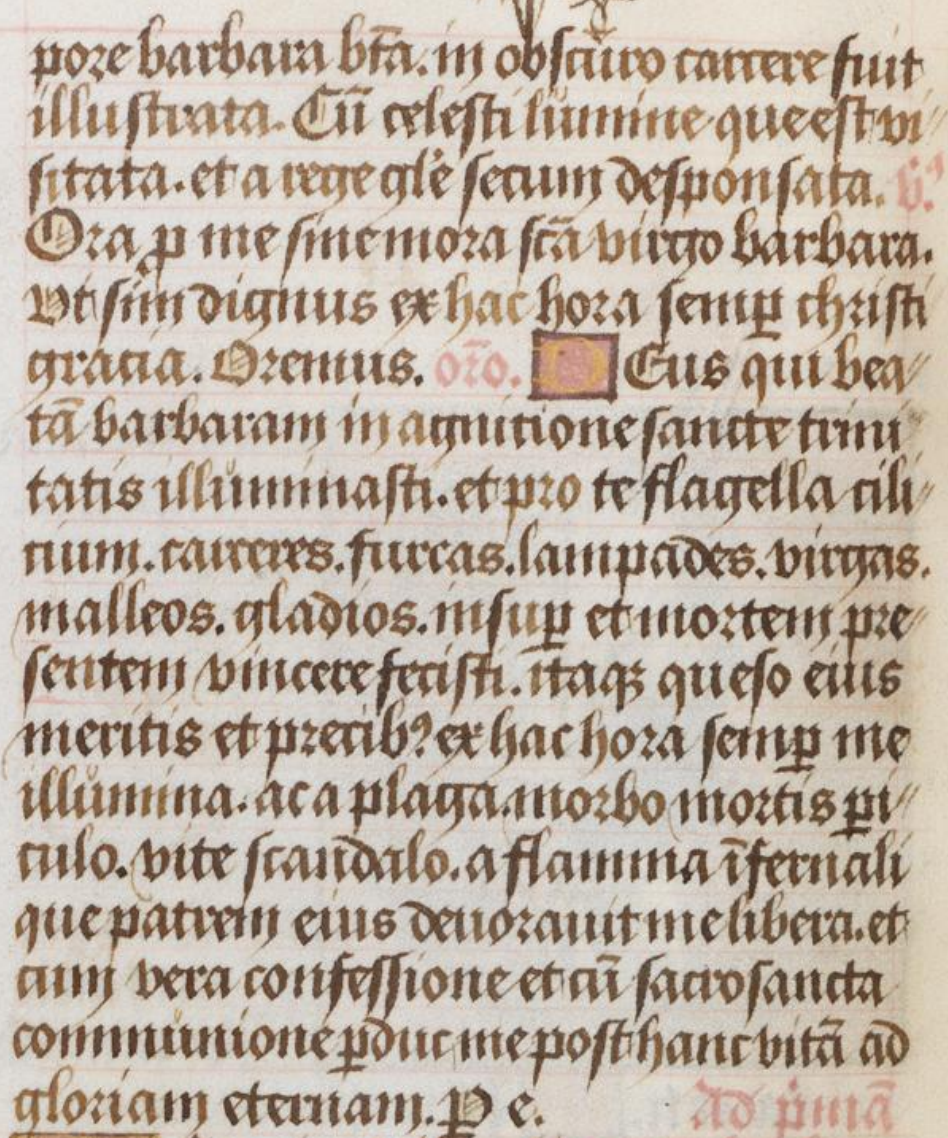 pore barbara bt̄a. in obscuro carcere fuit
illustrata. Cū celesti lumine que est vi⸗
sitata. et a rege gl̄e secum desponsata. ℣.
Ora ꝓ me sine mora sc̄a virgo barbara.
Vt sim dignus ex hac hora semꝑ christi
gracia. Oremus. or̄o. DEus qui bea⸗
tā barbaram in agnitione sancte trini
tatis illuminasti. et pro te flagella cili⸗
cium. carceres. furcas. lampades. virgas.
malleos. gladios. insuꝑ et mortem pre⸗
sentem vincere fecisti. itaqꝫ queso eius
meritis et precibꝰ ex hac hora semꝑ me
illumina. ac a plaga. morbo mortis ꝑi⸗
culo. vite scandalo. a flamma īfernali
que patrem eius deuorauit me libera. et
cum vera confessione et cū sacrosancta
communione ꝑduc me post hanc vitā ad
gloriam eternam. P e. Ad p̄mā